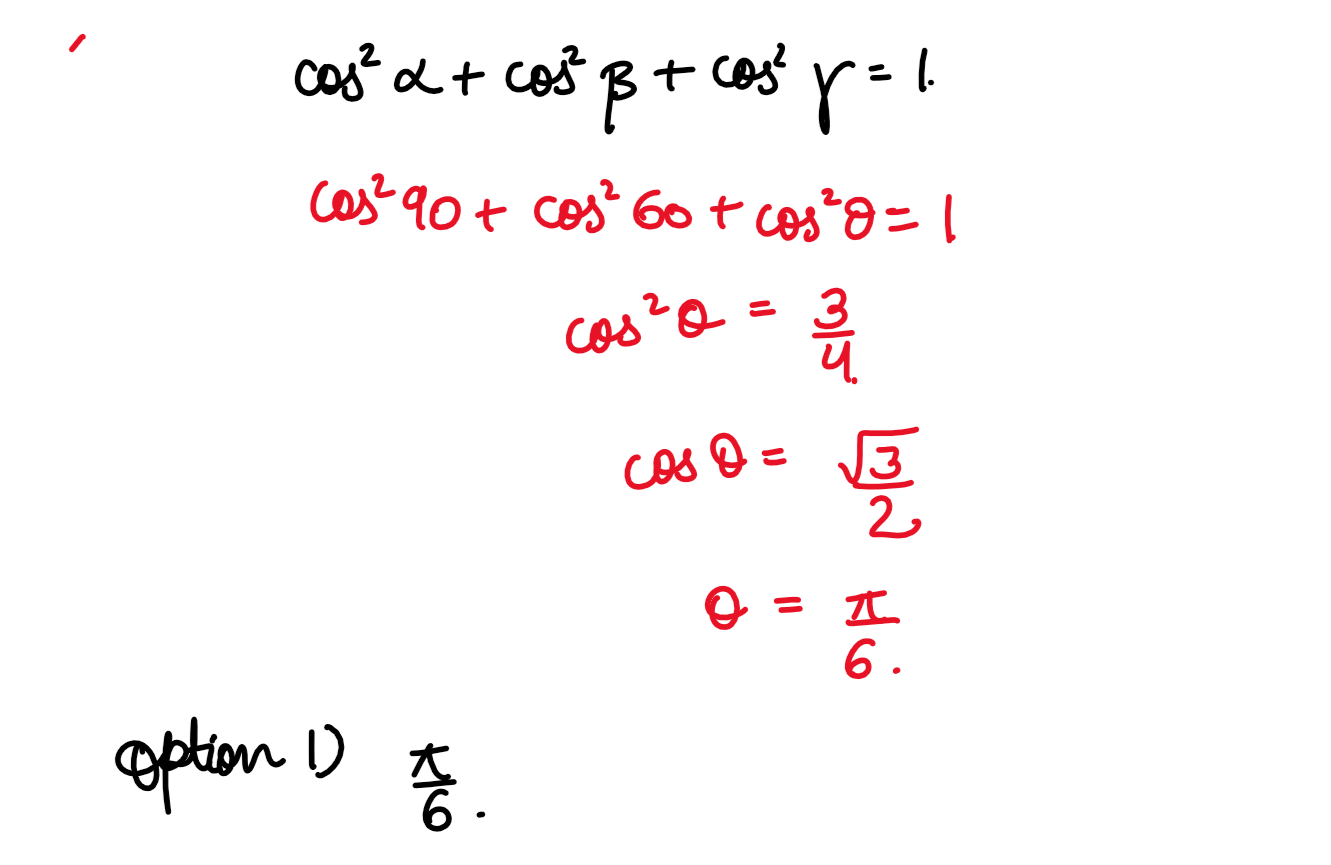 cos² α + cos² β + cos² γ = 1.
cos² 90 + cos² 60 + cos² θ = 1
cos² θ = 3/4.
cos θ = √3/2
θ = π/6.
option 1) π/6.